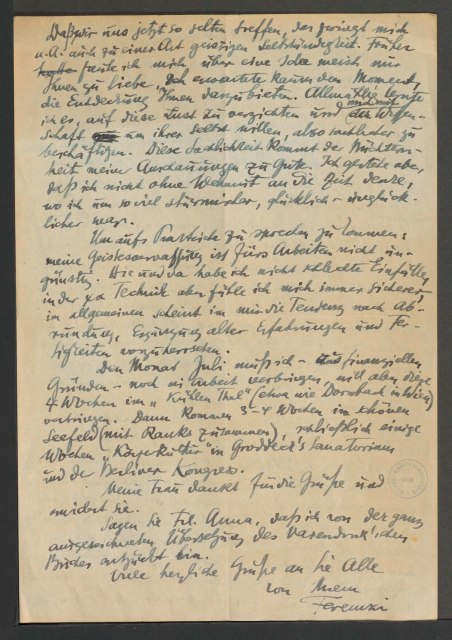 Daß wir uns jetzt so selten treffen, das zwingt mich
u. A. auch zu einer Art geistigen Selbständigkeit. Früher
freute ich mich über eine Idee meist nur
Ihnen zu Liebe. Ich erwartete kaum den Moment,
die Entdeckung Ihnen darzubieten. Allmählig lernte
ich es, auf diese Lust zu verzichten und mich mit der Wissen-
schaft um ihrer selbst willen, also sachlicher zu
beschäftigen. Diese Sachlichkeit kommt der Nüchtern-
heit meiner Anschauungen zu Gute. Ich gestehe aber,
daß ich nicht ohne Wehmut an die Zeit denke,
wo ich um so viel stürmischer, glücklich-unglück-
licher war.
Um aufs Praktische zu sprechen zu kommen:
meine Geistesverfassung ist fürs Arbeiten nicht un-
günstig. Hie und da habe ich nicht schlechte Einfälle,
in der Technik aber fühle ich mich immer sicherer,
im allgemeinen scheint in mir die Tendenz nach Ab-
rundung, Ergänzung alter Erfahrungen und Fe-
tigkeiten vorzuherrschen.
Den Monat Juli muß ich - aus finanziellen
Gründen - noch in Arbeit verbringen, will aber diese
4 Wochen im „Kühlen Thal" (etwa wie Dornbach in Wien)
verbringen. Dann kommen 3-4 Wochen im schönen
Seefeld (mit Ranks zusammen), schließlich einige
Wochen „Körperkultur" in Groddeck's Sanatorium
und der Berliner Kongress.
Meine Frau dankt für die Grüße und
erwidert sie.
Sagen Sie Frl. Anna, daß ich von der ganz
ausgezeichneten Übersetzung des Varendonck'schen
Buches entzückt bin.
Viele herzliche Grüße an Sie Alle
von Ihrem
Ferenczi